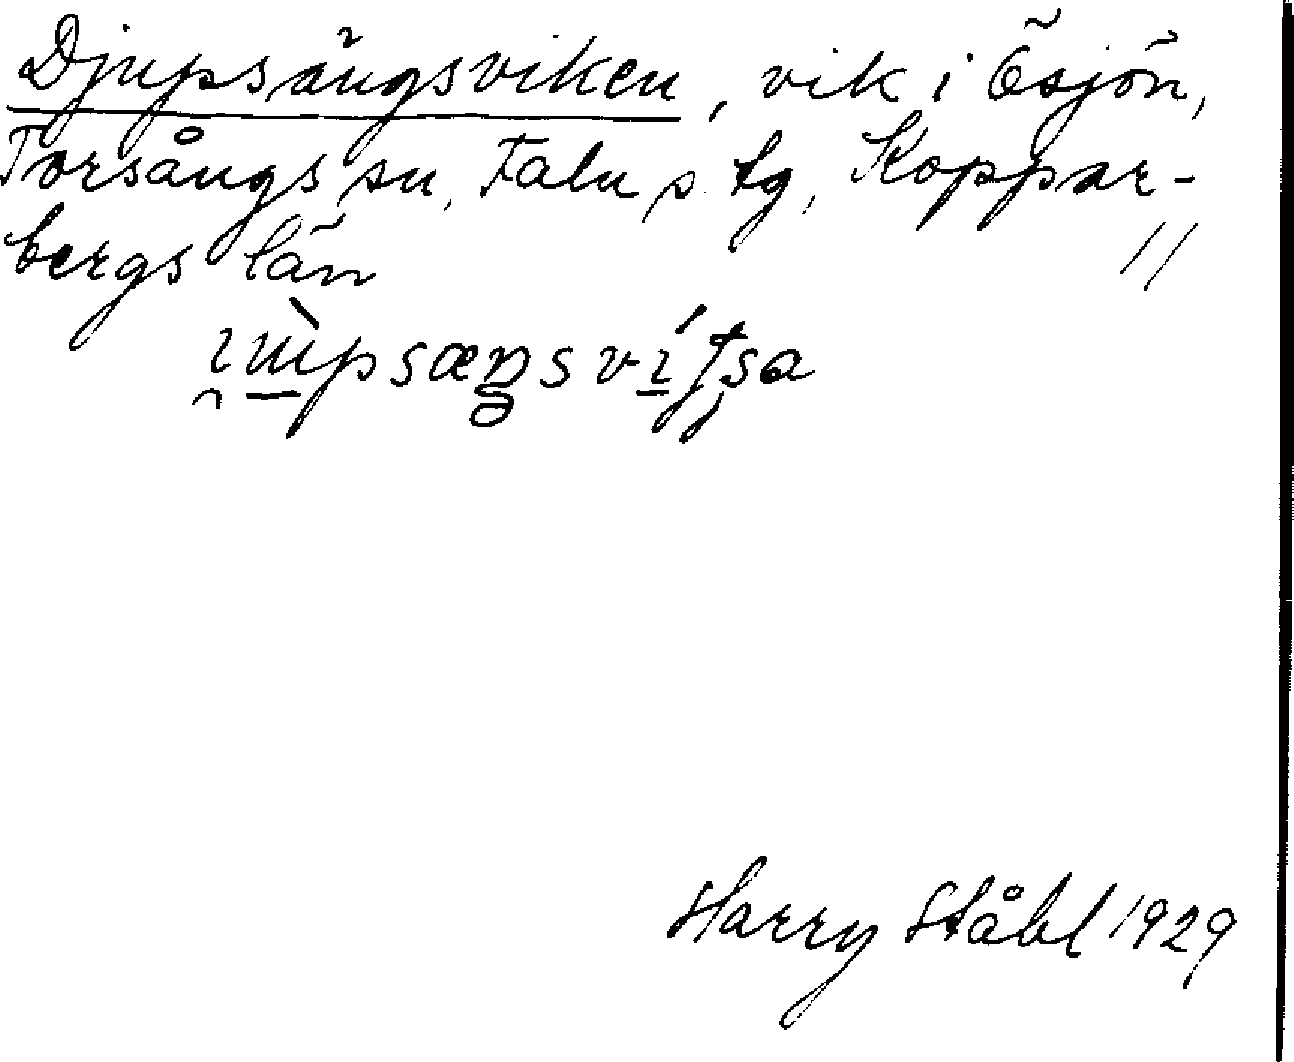 Djupsängsviken, vik i Ösjön,
Torsångs sn, Falu s. tg, Koppar-
bergs län
Harry Ståhl 1929